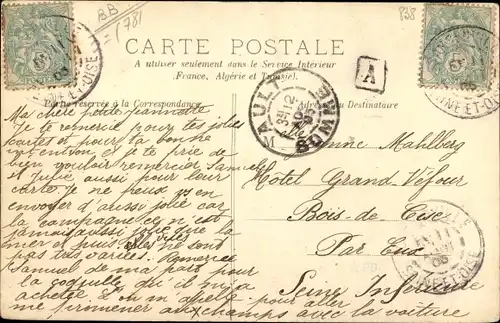 BB
(781
838
CARTE POSTALE
A utiliser seulement dans le Service Intérieur
(France, Algérie et Tunisie).
A
Partie réservée à la Correspondance
Adresse du Destinataire
AULT
SOMME
SEINE-ET-OISE
SEINE-ET-OISE
SEINE-ET-OISE
Ma chère petite Jeannette
Je te remercie pour tes jolies
cartes et pour ta bonne
attention et te prie de
bien vouloir remercier Samuel
et Julie aussi pour leur
carte. Je ne peux pas en
envoyer d'aussi jolie car
la campagne n'est
jamais aussi jolie que la
mer et puis les vues ne sont
pas très variées. Remercie
Samuel de ma part pour
la coquille qu'il m'a
achetée.
me promener aux champs avec la voiture
Mahlberg
Hotel Grand Véfour
Bois-de Cise
Par Eu
Seine Inférieure